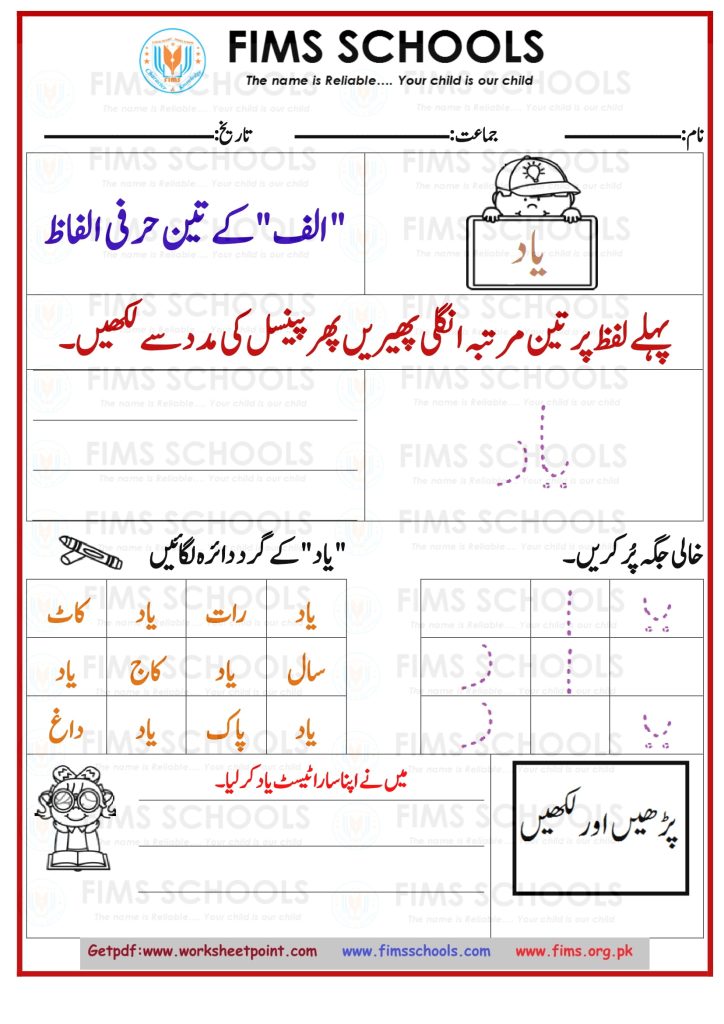 FIMS SCHOOLS
The name is Reliable.... Your child is our child
نام: جماعت: تاریخ:
یاد
"الف" کے تین حرفی الفاظ
پہلے لفظ پر تین مرتبہ انگلی پھیریں پھر پینسل کی مدد سے لکھیں۔
یاد
خالی جگہ پُر کریں۔
یـ ا
ا د
یـ د
"یاد" کے گرد دائرہ لگائیں
یاد رات یاد کاٹ
سال یاد کاج یاد
یاد پاک یاد داغ
پڑھیں اور لکھیں
میں نے اپنا سارا ٹیسٹ یاد کر لیا۔
Getpdf:www.worksheetpoint.com www.fimsschools.com www.fims.org.pk